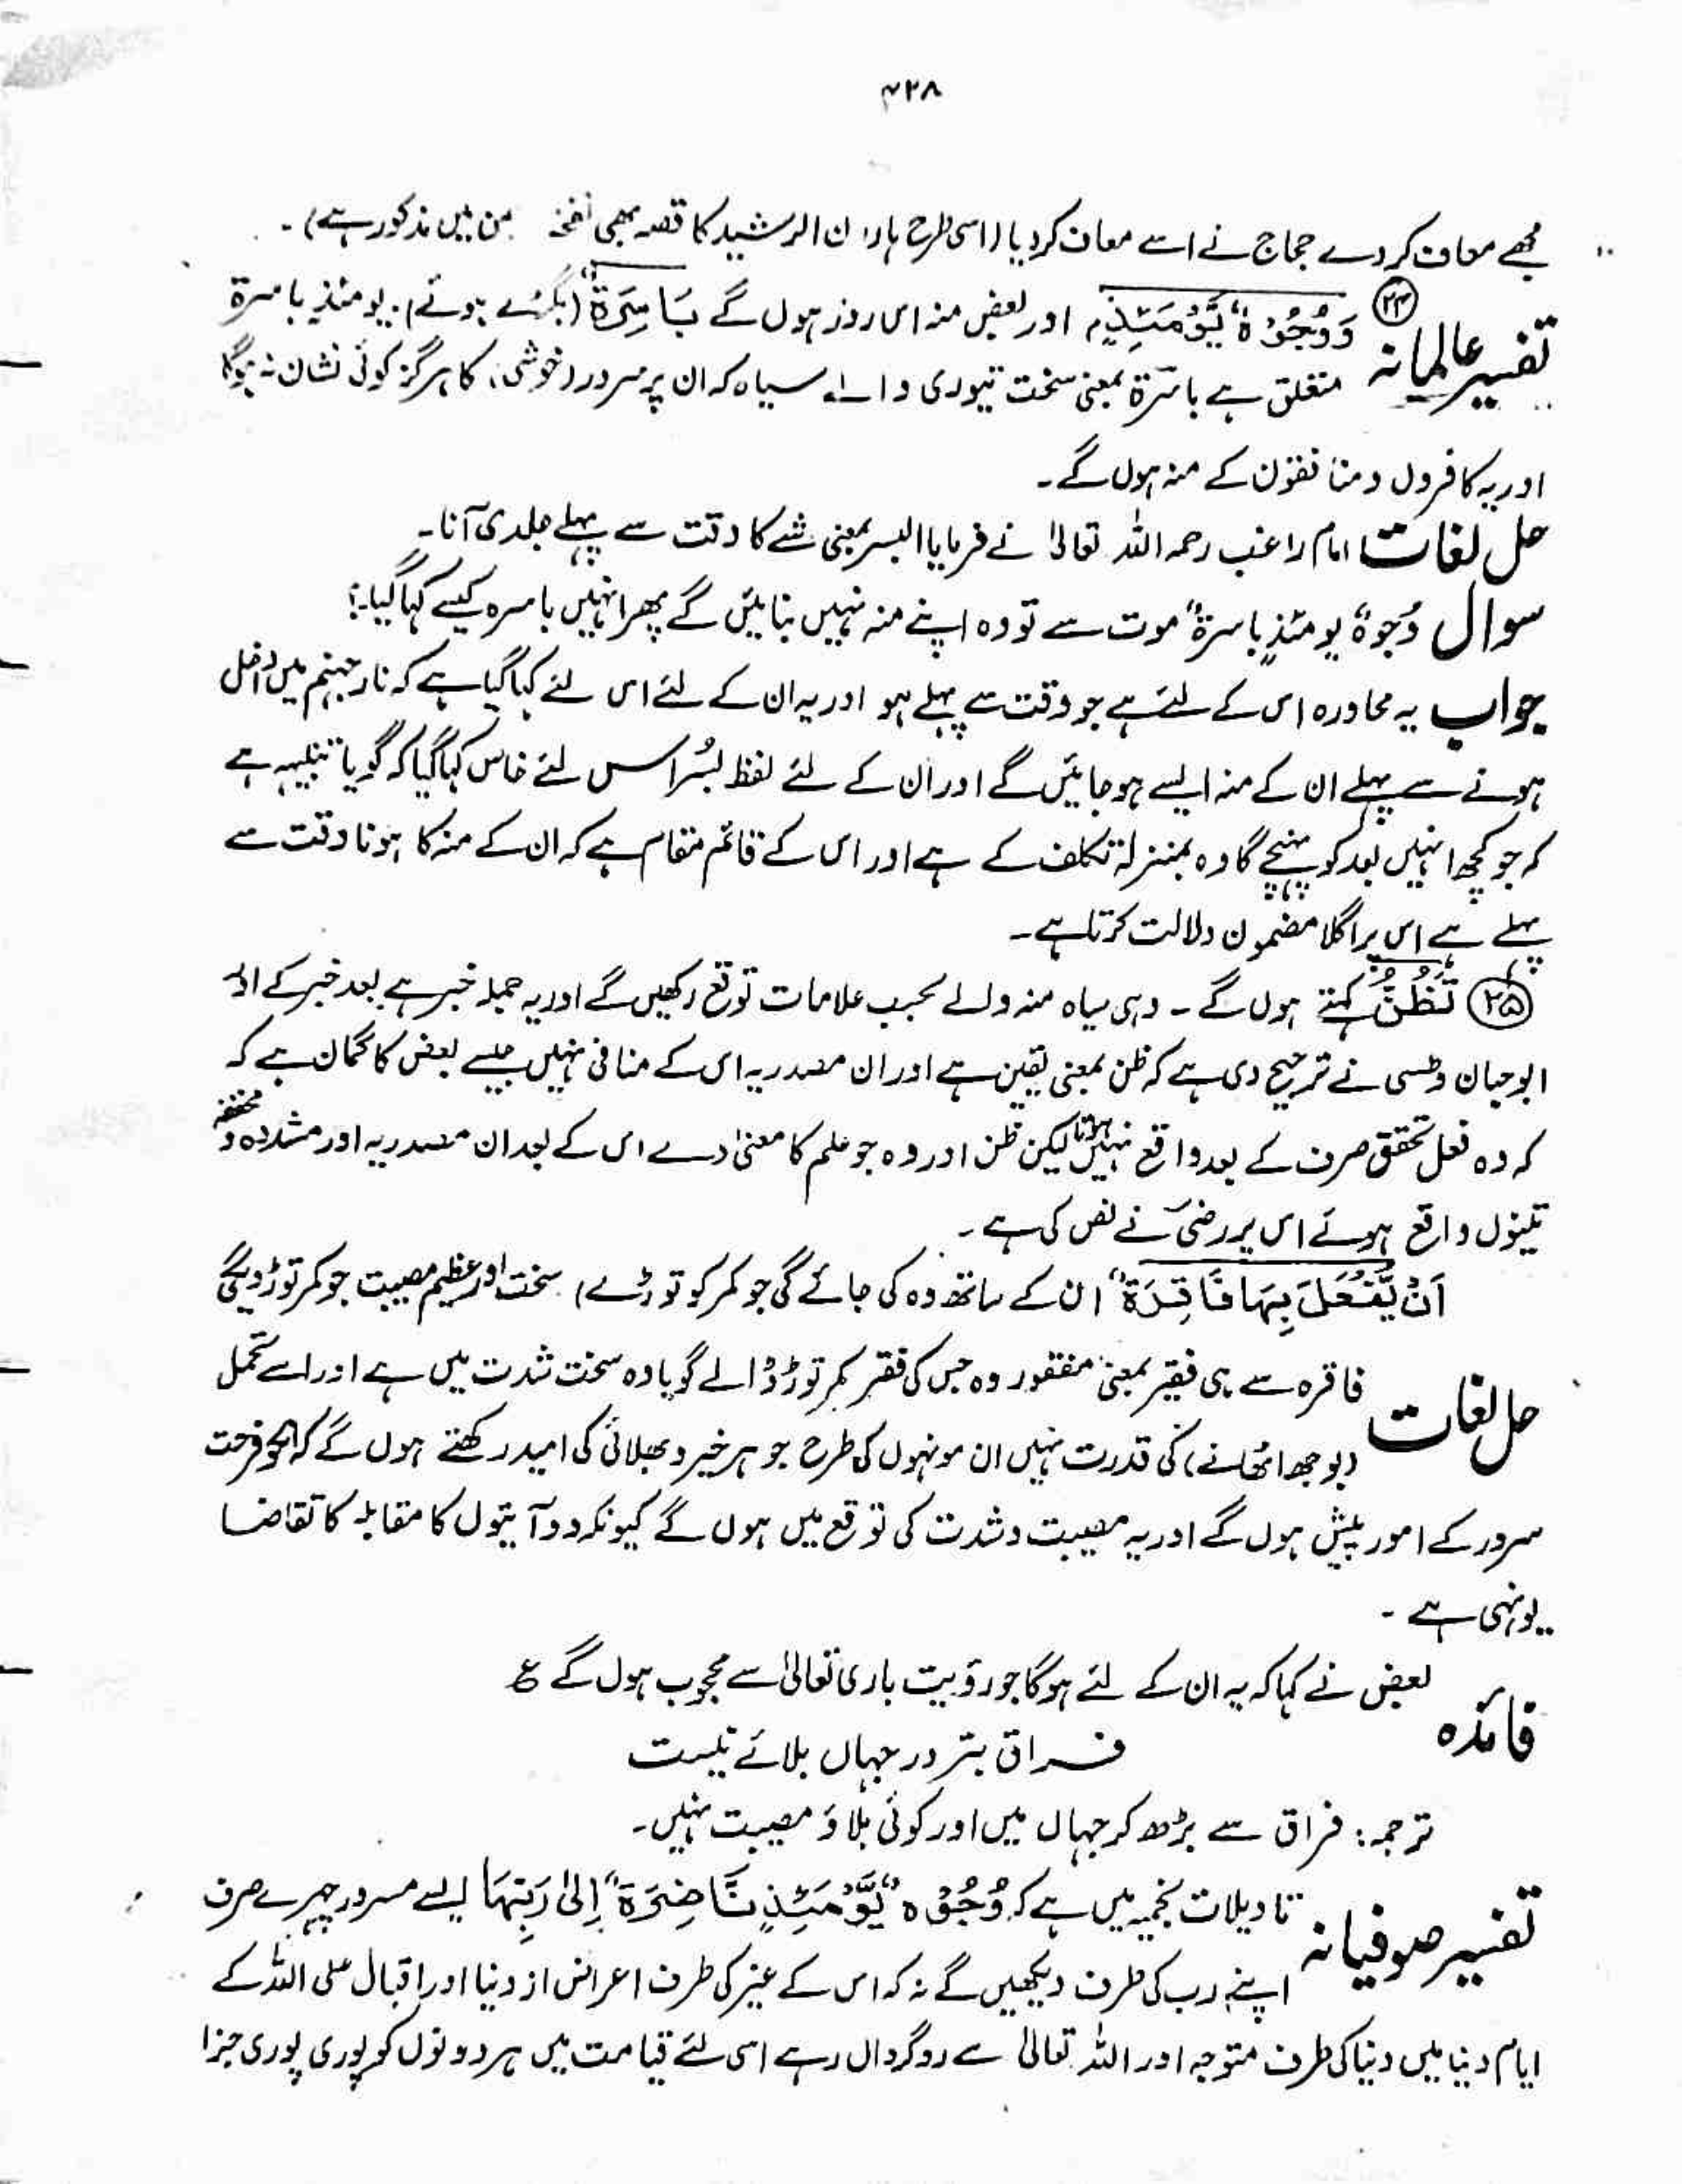 ۳۲۸
مجھے معاف کر دے حجاج نے اسے معاف کر دیا (اسی طرح ہارون الرشید کا قصہ بھی نفحۃ من میں مذکور ہے)۔
تفسیر عالمانہ ㉔ وَوُجُوْہٌ یَّوْمَئِذٍۭ اور بعض منہ اس روز ہوں گے بَاسِرَۃٌ (بگڑے ہوئے)۔ یومئذٍ باسرۃ
متعلق ہے باسَرۃ بمعنیٰ سخت تیوری والے سیاہ کہ ان پر سرور (خوشی) کا ہرگز کوئی نشان نہ ہوگا
اور یہ کافروں و منافقوں کے منہ ہوں گے۔
حل لغات امام راغب رحمہ اللہ تعالیٰ نے فرمایا البسر بمعنی شے کا وقت سے پہلے جلدی آنا۔
سوال وُجوہٌ یومئذٍ باسرۃٌ موت سے تو وہ اپنے منہ نہیں بنائیں گے پھر انہیں باسرہ کیسے کہا گیا۔؟
جواب یہ محاورہ اس کے لئے ہے جو وقت سے پہلے ہو اور یہ ان کے لئے اس لئے کہا گیا ہے کہ نار جہنم میں داخل
ہونے سے پہلے ان کے منہ ایسے ہو جائیں گے اور ان کے لئے لفظ بُسْر اس لئے خاص کہا گیا کہ گویا تنبیہہ ہے
کہ جو کچھ انہیں بعد کو پہنچے گا وہ بمنزلۃ تکلف کے ہے اور اس کے قائم مقام ہے کہ ان کے منہ کا ہونا وقت سے
پہلے ہے اس پر اگلا مضمون دلالت کرتا ہے۔
㉕ تَظُنُّ کہتے ہوں گے۔ وہی سیاہ منہ والے بحسب علامات توقع رکھیں گے اور یہ جملہ خبر ہے بعد خبر کے اور
ابو حیان و طسی نے ترجیح دی ہے کہ ظن بمعنی یقین ہے اور ان مصدریہ اس کے منافی نہیں جیسے بعض کا گمان ہے کہ
کہ وہ فعل تحقق صرف کے بعد واقع نہیں ہوتا لیکن ظن اور وہ جو علم کا معنیٰ دے اس کے بعد ان مصدریہ اور مشددہ و مخففہ
تینوں واقع ہوئے اس پر رضی نے نص کی ہے۔
اَنْ یُّفْعَلَ بِہَا فَاقِرَۃٌ ان کے ساتھ وہ کی جائے گی جو کمر کو توڑے) سخت اور عظیم مصیبت جو کمر توڑ دیگی
حل لغات فاقرہ سے ہی فقیر بمعنی مفقور وہ جس کی فقر کمر توڑ ڈالے گویا وہ سخت شدت میں ہے اور اسے تحمل
(بوجھ اٹھانے) کی قدرت نہیں ان مونہوں کی طرح جو ہر خیر و بھلائی کی امید رکھتے ہوں گے کہ انکو فرحت
سرور کے امور پیش ہوں گے اور یہ مصیبت و شدت کی توقع میں ہوں گے کیونکہ دو آیتوں کا مقابلہ کا تقاضا
یونہی ہے۔
فائدہ بعض نے کہا کہ یہ ان کے لئے ہوگا جو رؤیت باری تعالیٰ سے محجوب ہوں گے ؏
فراق بتر در جہاں بلائے نیست
ترجمہ: فراق سے بڑھ کر جہاں میں اور کوئی بلا و مصیبت نہیں۔
تفسیر صوفیانہ تاویلات نجمیہ میں ہے کہ وُجُوْہٌ یَّوْمَئِذٍ نَّاضِرَۃٌ اِلیٰ رَبِّہَا ایسے مسرور چہرے صرف
اپنے رب کی طرف دیکھیں گے نہ کہ اس کے غیر کی طرف اعراض از دنیا اور اقبال علی اللہ کے
ایام دنیا میں دنیا کی طرف متوجہ اور اللہ تعالیٰ سے روگرداں رہے اسی لئے قیامت میں ہر دونوں کو پوری پوری جزا